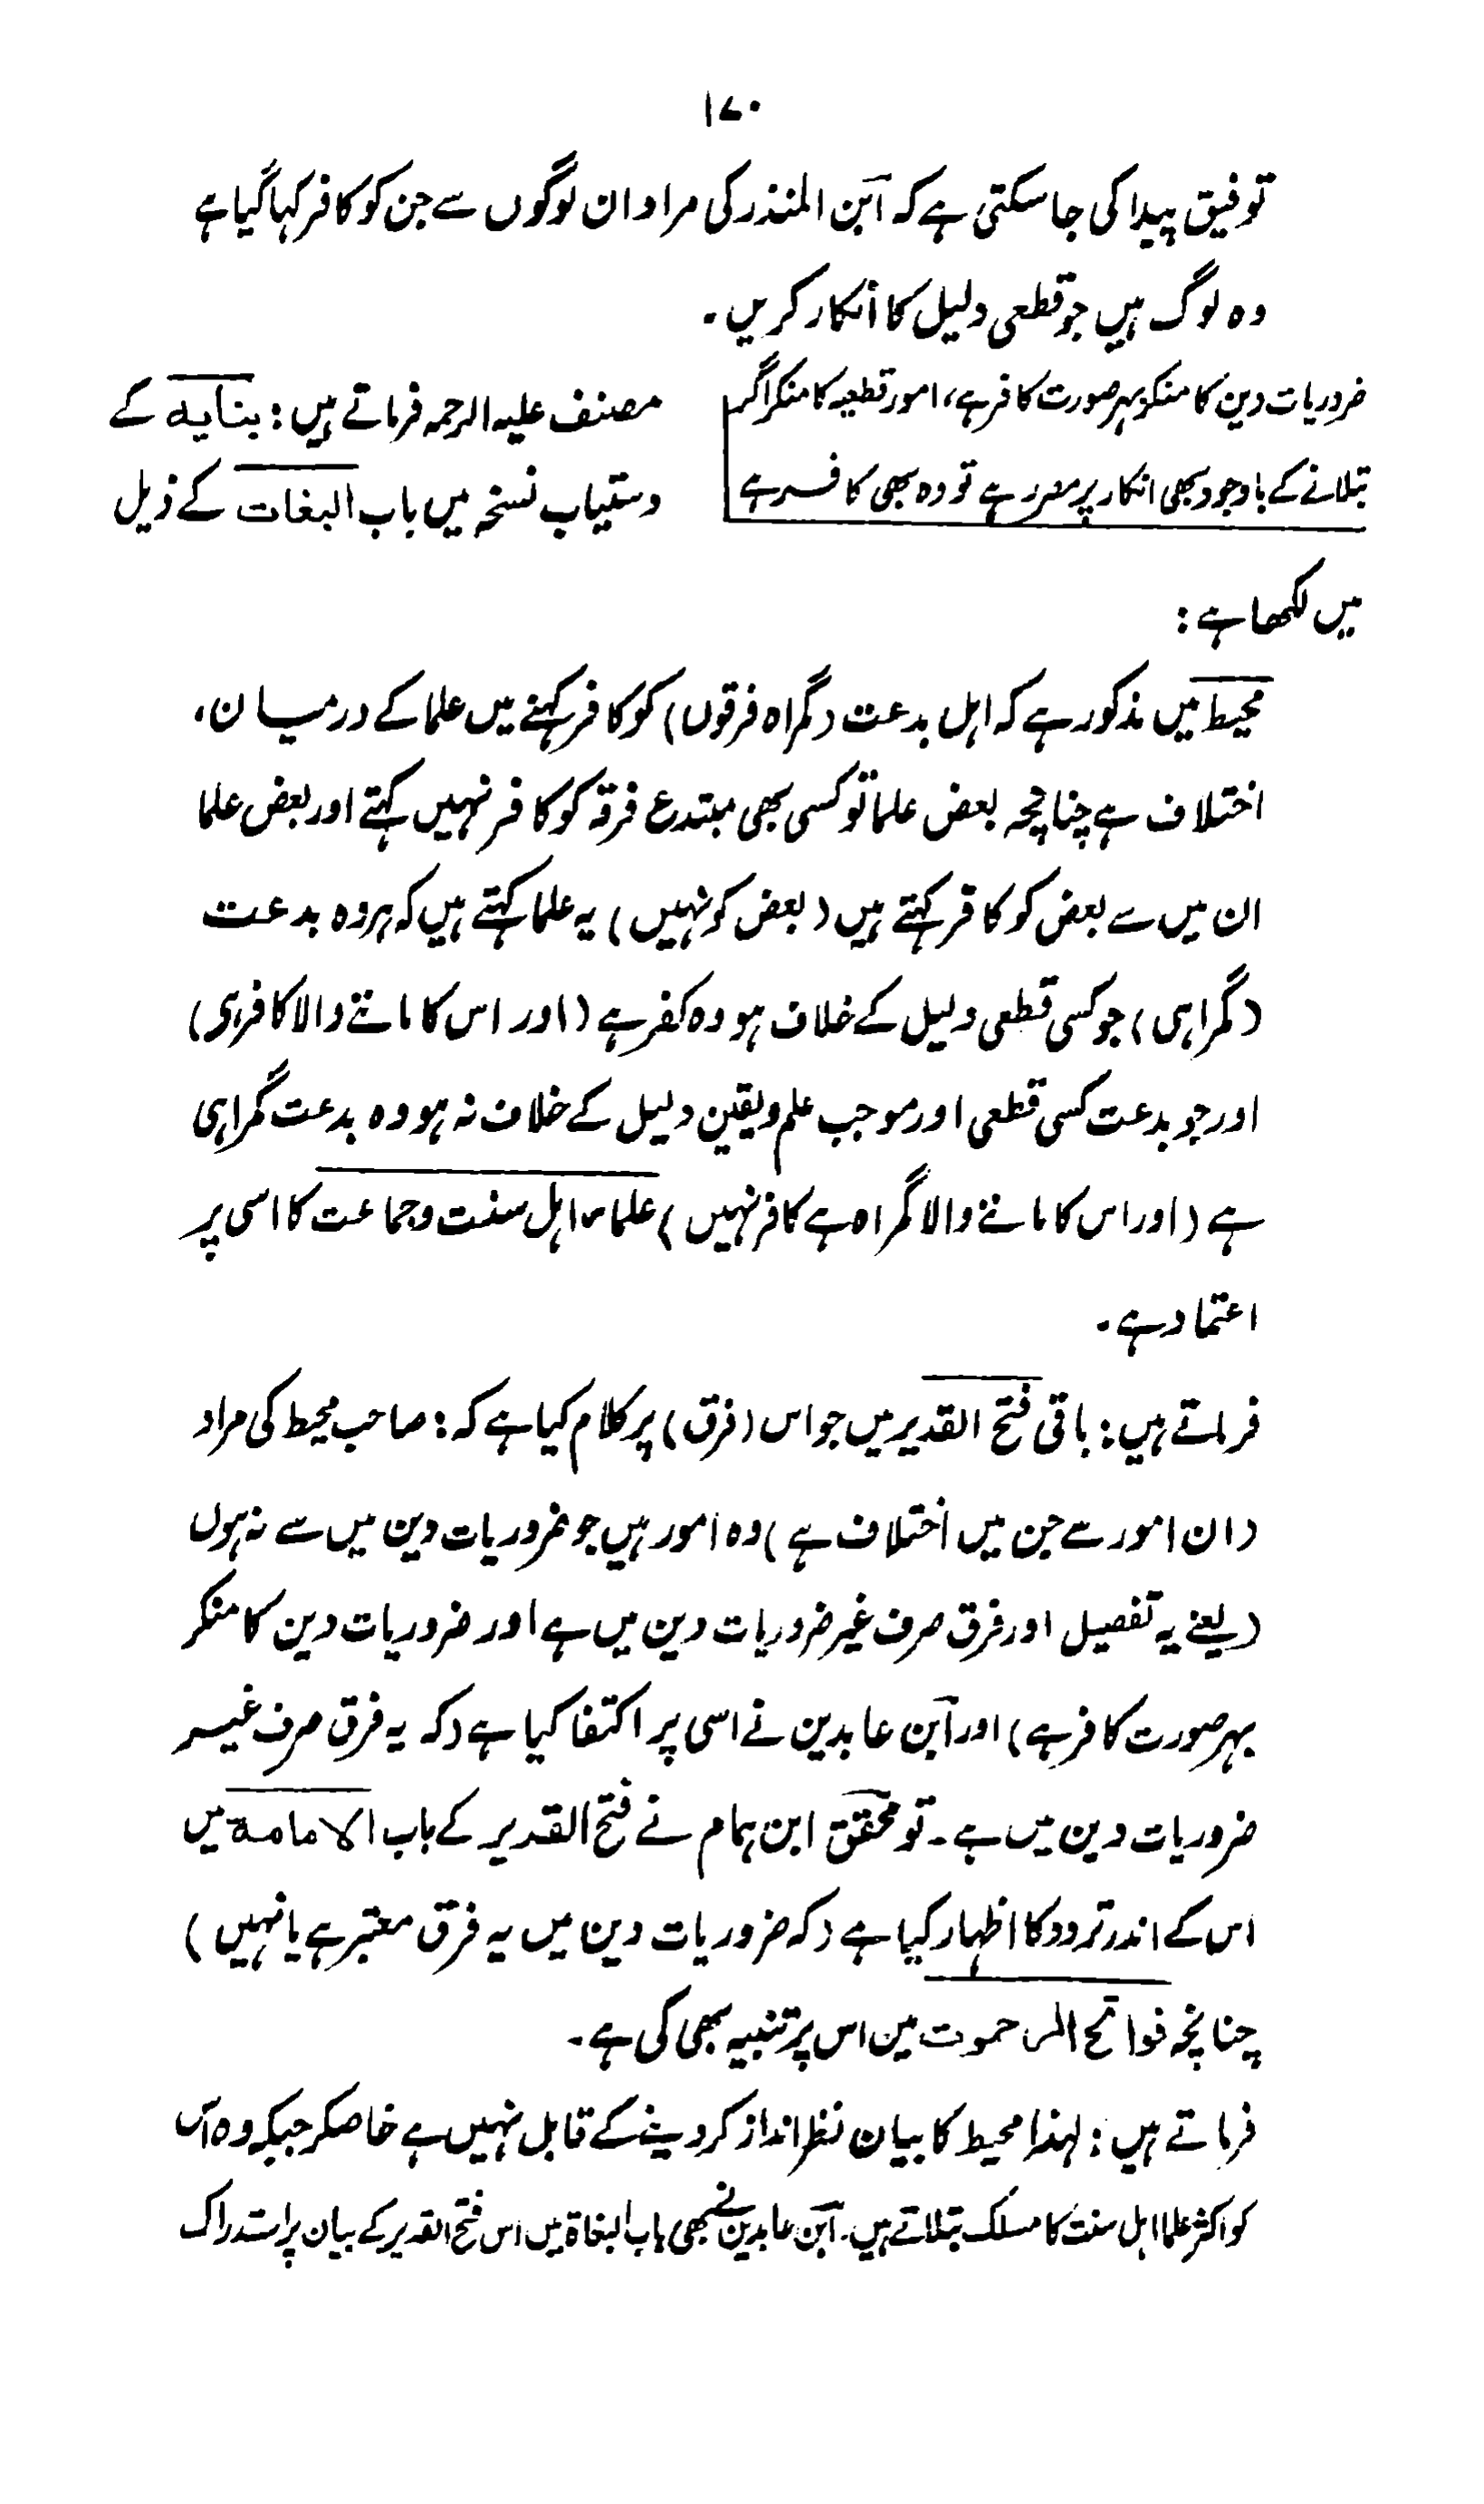 ۱۷۰
توفیق پیدا کی جا سکتی ہے کہ ابن المنذر کی مراد ان لوگوں سے جن کو کافر کہا گیا ہے
وہ لوگ ہیں جو قطعی دلیل کا انکار کریں۔
ضروریات دین کا منکر بہر صورت کافر ہے، امور قطعیہ کا منکر اگر
بتلانے کے باوجود بھی انکار پر مصر رہے تو وہ بھی کافر ہے
مصنف علیہ الرحمہ فرماتے ہیں: بنایہ کے
دستیاب نسخہ میں باب البغات کے ذیل
میں لکھا ہے:
محیط میں مذکور ہے کہ اہل بدعت (گمراہ فرقوں) کو کافر کہنے میں علما کے درمیان،
اختلاف ہے چنانچہ بعض علما تو کسی بھی مبتدع فرقہ کو کافر نہیں کہتے اور بعض علما
ان میں سے بعض کو کافر کہتے ہیں (بعض کو نہیں) یہ علما کہتے ہیں کہ ہر وہ بدعت
(گمراہی) جو کسی قطعی دلیل کے خلاف ہو وہ کفر ہے (اور اس کا ماننے والا کافر ہی)
اور جو بدعت کسی قطعی اور موجب علم ویقین دلیل کے خلاف نہ ہو وہ بدعت گمراہی
ہے (اور اس کا ماننے والا گمراہ ہے کافر نہیں) علماء اہل سنت وجماعت کا اسی پر
اعتماد ہے۔
فرماتے ہیں: باقی فتح القدیر میں جو اس (فرق) پر کلام کیا ہے کہ: صاحب محیط کی مراد
(ان امور سے جن میں اختلاف ہے) وہ امور ہیں جو ضروریات دین میں سے نہ ہوں
(یعنے یہ تفصیل اور فرق صرف غیر ضروریات دین میں ہے اور ضروریات دین کا منکر
بہر صورت کافر ہے) اور ابن عابدین نے اسی پر اکتفا کیا ہے (کہ یہ فرق صرف غیر
ضروریات دین میں ہے۔ تو محقق ابن ہمام نے فتح القدیر کے باب الامامۃ میں
اس کے اندر تردد کا اظہار کیا ہے (کہ ضروریات دین میں یہ فرق معتبر ہے یا نہیں)
چنانچہ فواتح الرحموت میں اس پر تنبیہ بھی کی ہے۔
فرماتے ہیں: لہذا محیط کا بیان نظر انداز کر دینے کے قابل نہیں ہے خاصکر جبکہ وہ اس
کو اکثر علما اہل سنت کا مسلک بتلاتے ہیں۔ ابن عابدین نے بھی باب البغاۃ میں اس فتح القدیر کے بیان پر استدراک